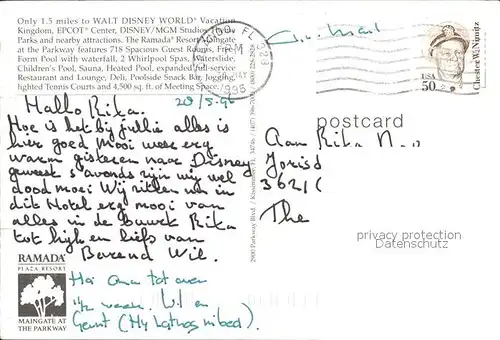 Only 1.5 miles to WALT DISNEY WORLD® Vacation
Kingdom, EPCOT® Center, DISNEY/MGM Studios Theme
Parks and nearby attractions. The Ramada® Resort Maingate
at the Parkway features 718 Spacious Guest Rooms, Free
Form Pool with waterfall, 2 Whirlpool Spas, Waterslide,
Children's Pool, Sauna, Heated Pool, expanded full-service
Restaurant and Lounge, Deli, Poolside Snack Bar, Jogging,
lighted Tennis Courts and 4,500 sq. ft. of Meeting Space.
FL 328
PM
MAY
1995
Air Mail
USA
50
Chester W. Nimitz
20/5-96
Hallo Rita.
Hoe is het bij jullie alles is
hier goed Mooi weer erg
warm gisteren naar Disney
geweest s'avonds zijn wij wel
dood moei Wij zitten nu in
dit Hotel erg mooi van
alles in de buurt Rita
tot kijk en liefs van
Barend Wil.
postcard
Aan Rita
3621C
The
2900 Parkway Blvd. / Kissimmee, FL 34746 / (407)
privacy protection
Datenschutz
RAMADA®
PLAZA RESORT
MAINGATE AT
THE PARKWAY
Hoi Oma tot over
1½ week. Wil en
Gerrit